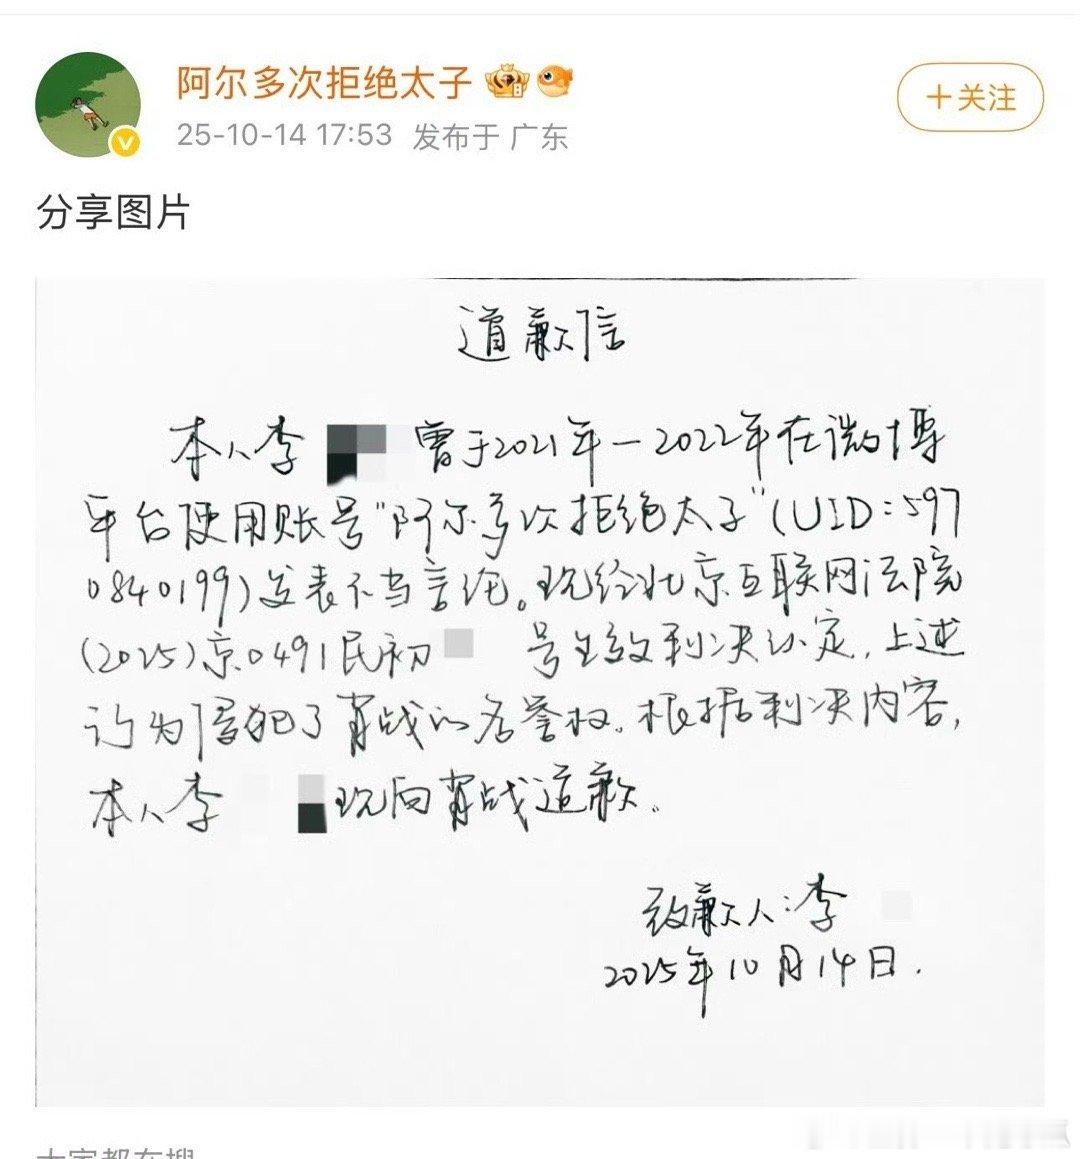 阿尔多次拒绝太子
+关注
25-10-14 17:53 发布于 广东
分享图片
道歉信
本人李 曾于2021年-2022年在微博
平台使用账号"阿尔多次拒绝太子"(UID:597
0840199)发表不当言论。现经北京互联网法院
(2025)京0491民初 号生效判决认定,上述
行为侵犯了肖战的名誉权。根据判决内容,
本人李 现向肖战道歉。
致歉人:李
2025年10月14日.
大家都在搜